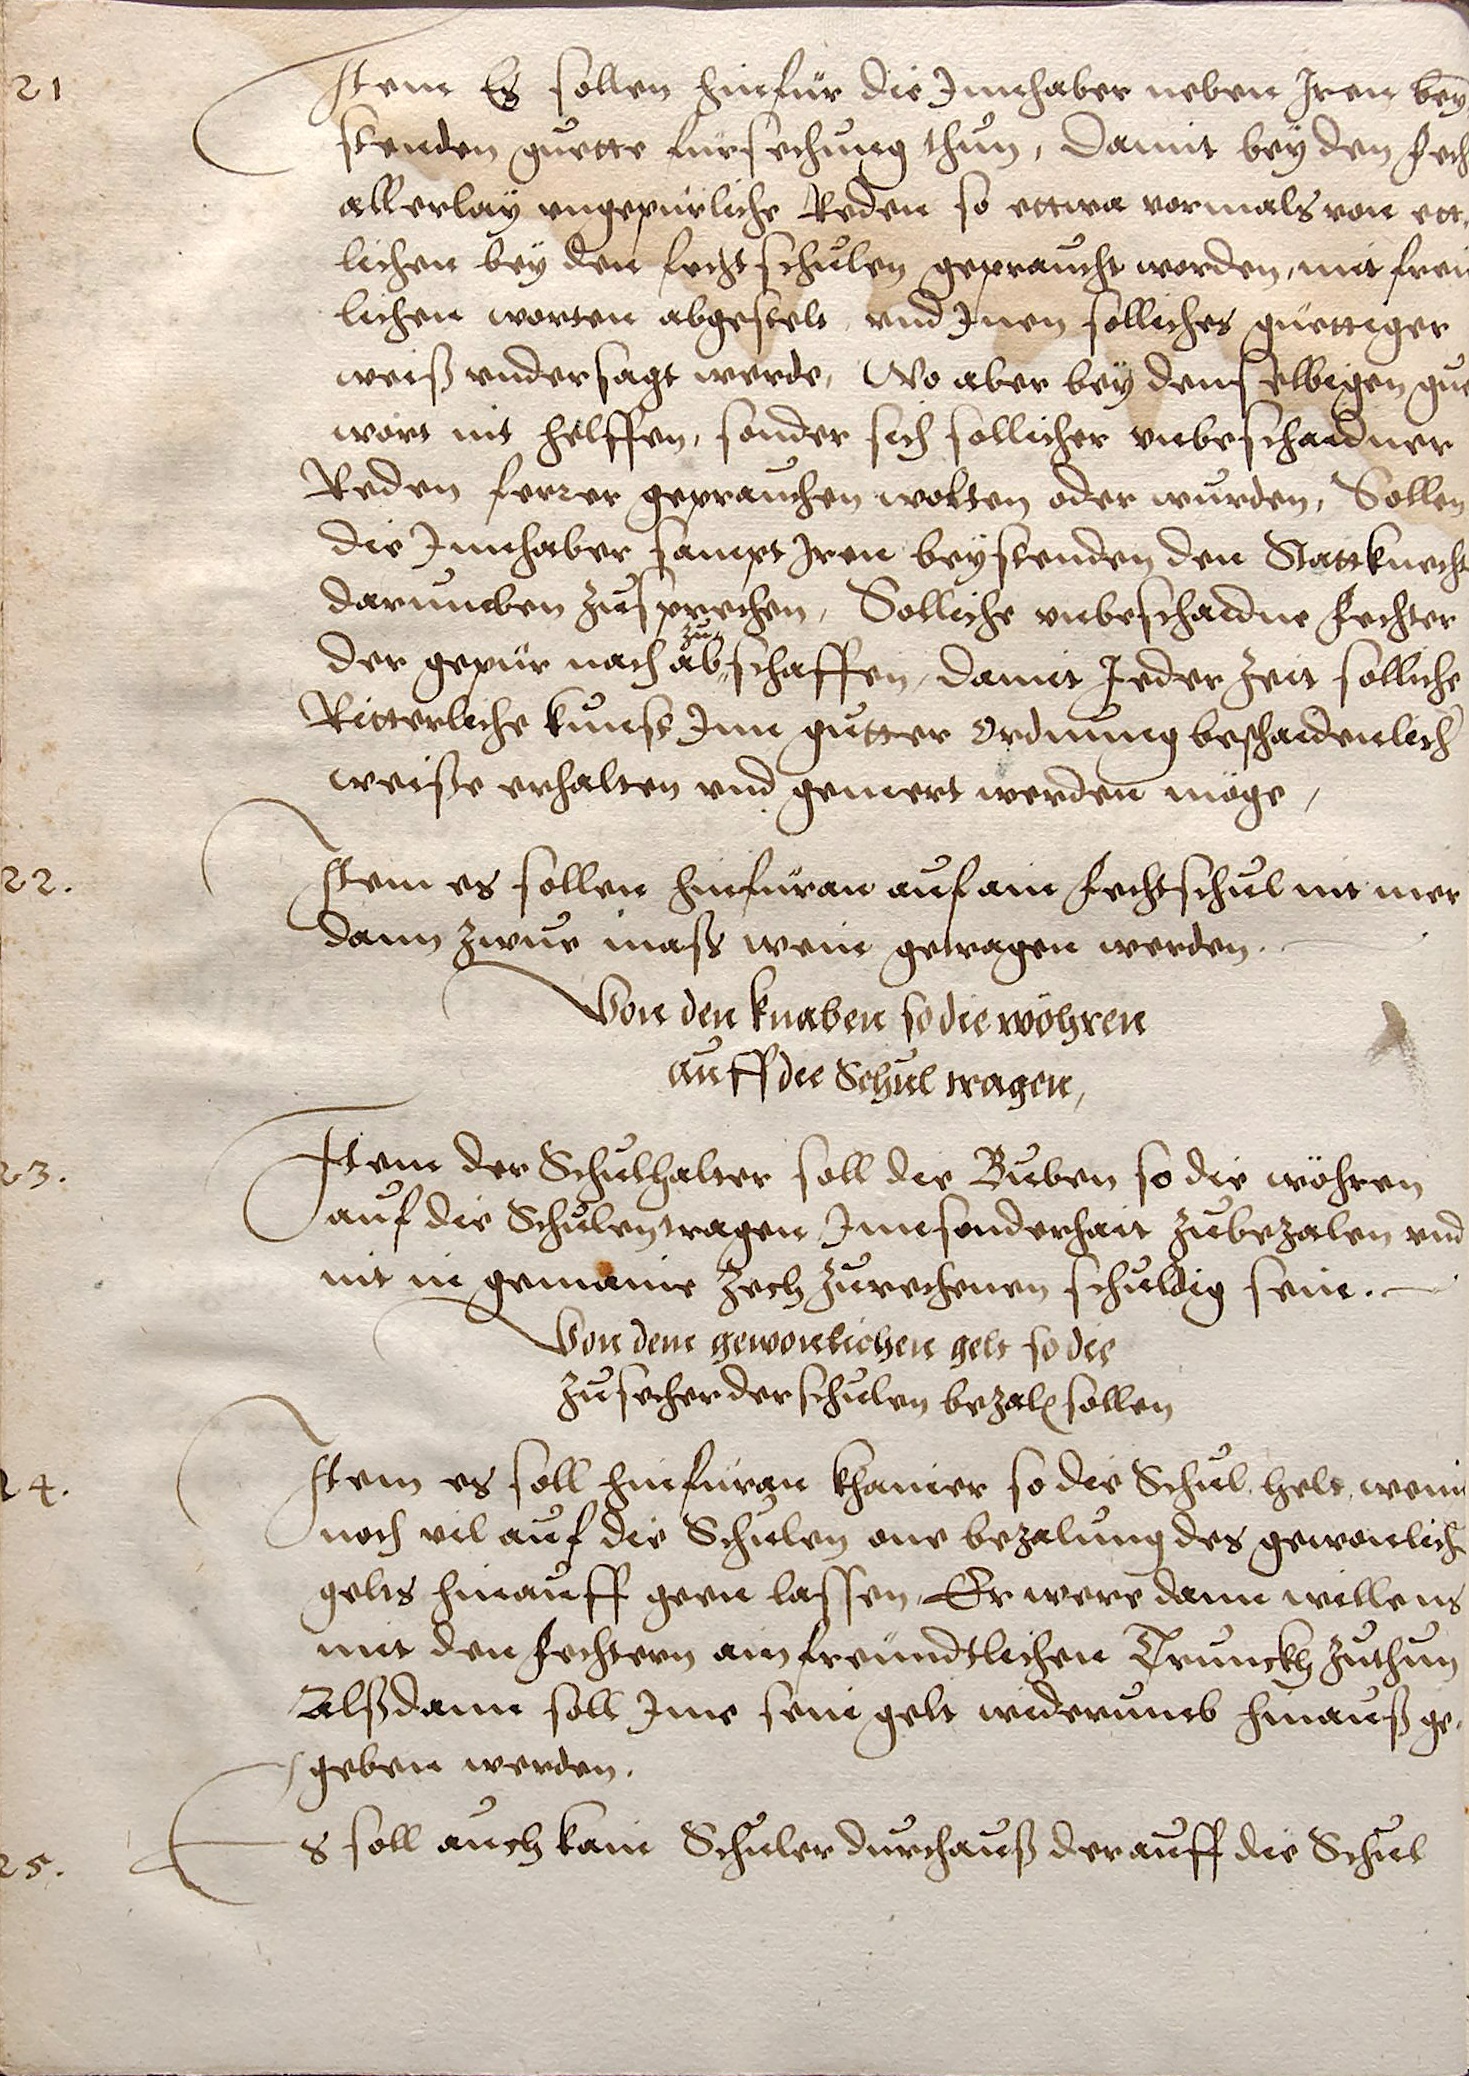 21
Item Es sollen hinfür die Innhaber neben Iren bey
stenden guette fürsechung thun, Damit bey den fech
allerlaÿ ungepürliche Reden so ettwa vormals von ett,
lichen bey den fechtschulen gepraucht worden, mit freü
lichen worten abgestelt, vnd Inen solliches güettiger
weiß vndersagt werde, Wo aber beÿ denselbigen gue
wort nit helffen, sonder sich sollicher vnbeschaidner
Reden ferrer geprauchen wolten oder wurden, Sollen
die Innhaber sampt Iren beÿstenden den Stattknecht
darumben zusprechen, Solliche vnbeschaidne fechter
der gepür nach ab zu schaffen, damit Jeder Zeit solliche
Ritterliche kunst Inn gutter Ordnung beschaidenlich
weiße erhalten vnd gemert werden möge,
22.
Item es sollen hinfüran auf ain fechtschul nit mer
dann zwue maß wein getragen werden.
Von den knaben so die wöhren
auff die Schul tragen,
23.
Item der Schulhalter soll die Buben so die wöhren
auf die Schulen tragen Innsonderhait zubezalen vnd
nit in gemaine Zech zurechenen schuldig sein.
Von dem gewonlichen gelt so die
zusecher der schulen bezalen sollen
24.
Item es soll hinfüran khainer so die Schul helt, wenig
noch vil auf die Schulen one bezalung des gewonlich
gelts hinauff geen lassen, Er were dann willens
mit den fechtern ain freündtlichen Trunckh zuthun
Alßdann soll Ime sein gelt widerumb hinauß ge,
geben werden.
25.
Es soll auch kain Schuler durchauß der auff die Schul